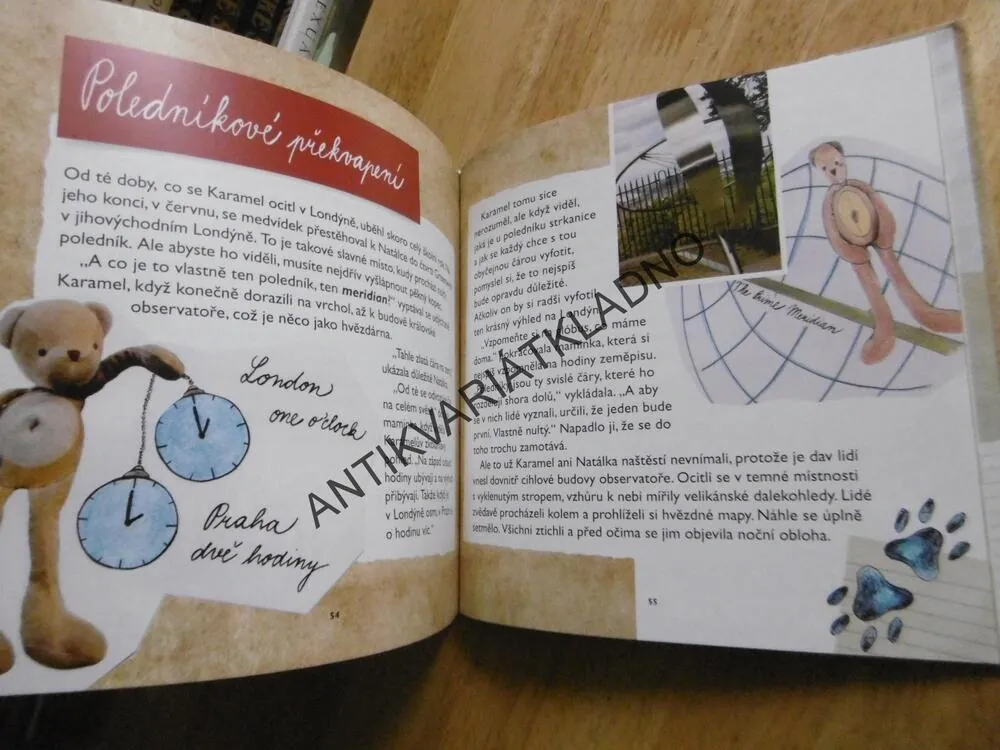 EXUA
Poledníkové překvapení
Od té doby, co se Karamel ocitl v Londýně, uběhl skoro celý školní rok. Na
jeho konci, v červnu, se medvídek přestěhoval k Natálce do čtvrti Greenwich
v jihovýchodním Londýně. To je takové slavné místo, kudy prochází nultý
poledník. Ale abyste ho viděli, musíte nejdřív vyšlápnout pěkný kopec.
„A co je to vlastně ten poledník, ten meridian?" vyptával se udýchaně
Karamel, když konečně dorazili na vrchol, až k budově královské
observatoře, což je něco jako hvězdárna.
„Tahle zlatá čára na zemi,"
ukázala důležitě Natálka.
„Od té se
na celém světě
maminka, když
Karamelův
pohled. „Na západ odsud
hodiny ubývají a na východ
přibývají. Takže když je
v Londýně osm, v Praze je
o hodinu víc."
London
one o'clock
Praha
dvě hodiny
54
Karamel tomu sice
nerozuměl, ale když viděl,
jaká je u poledníku strkanice
a jak se každý chce s tou
obyčejnou čárou vyfotit,
pomyslel si, že to nejspíš
bude opravdu důležité.
Ačkoliv on by si radši vyfotil
ten krásný výhled na Londýn.
„Vzpomeňte si na glóbus, co máme
doma." Pokračovala maminka, která si
nejspíš vzpomněla na hodiny zeměpisu.
„Poledníky jsou ty svislé čáry, které ho
rozdělují shora dolů," vykládala. „A aby
se v nich lidé vyznali, určili, že jeden bude
první. Vlastně nultý." Napadlo ji, že se do
toho trochu zamotává.
Ale to už Karamel ani Natálka naštěstí nevnímali, protože je dav lidí
vnesl dovnitř cihlové budovy observatoře. Ocitli se v temné místnosti
s vyklenutým stropem, vzhůru k nebi mířily velikánské dalekohledy. Lidé
zvědavě procházeli kolem a prohlíželi si hvězdné mapy. Náhle se úplně
setmělo. Všichni ztichli a před očima se jim objevila noční obloha.
The Prime Meridian
55
ANTIKVARIÁTKLADNO